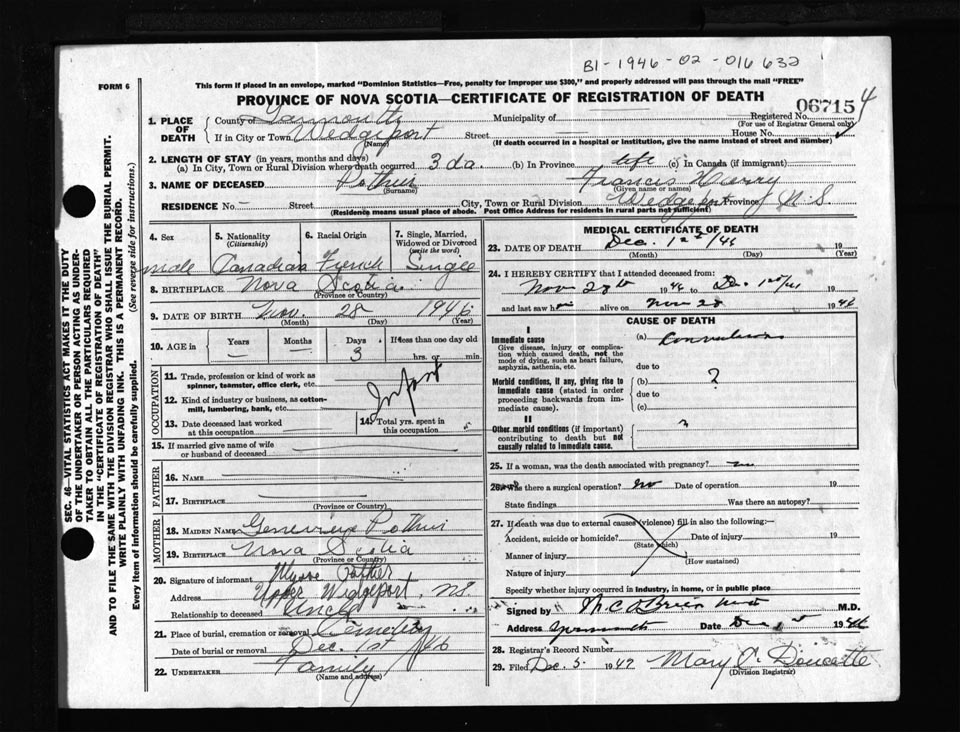 B1-1946-02-016632
FORM 6
This form if placed in an envelope, marked "Dominion Statistics—Free, penalty for improper use $300," and properly addressed will pass through the mail "FREE"
PROVINCE OF NOVA SCOTIA—CERTIFICATE OF REGISTRATION OF DEATH
06715 4
1. PLACE OF DEATH
County of Yarmouth Municipality of Registered No.
(For use of Registrar General only)
If in City or Town Wedgeport Street House No.
(Name) (If death occurred in a hospital or institution, give the name instead of street and number)
2. LENGTH OF STAY (in years, months and days)
(a) In City, Town or Rural Division where death occurred 3 da. (b) In Province life (c) In Canada (if immigrant)
3. NAME OF DECEASED Pothier Francis Harry
(Surname) (Given name or names)
RESIDENCE No. — Street City, Town or Rural Division Wedgeport Province N.S.
(Residence means usual place of abode. Post Office Address for residents in rural parts not sufficient)
4. Sex
male
5. Nationality
(Citizenship)
Canadian
6. Racial Origin
French
7. Single, Married, Widowed or Divorced
(write the word)
Single
8. BIRTHPLACE Nova Scotia
(Province or Country)
9. DATE OF BIRTH Nov. 28 1946
(Month) (Day) (Year)
10. AGE in Years Months Days If less than one day old
— — 3 hrs. or min.
OCCUPATION
11. Trade, profession or kind of work as spinner, teamster, office clerk, etc.
12. Kind of industry or business, as cotton-mill, lumbering, bank, etc.
Infant
13. Date deceased last worked at this occupation
14. Total yrs. spent in this occupation
15. If married give name of wife or husband of deceased
FATHER
16. Name
17. Birthplace
MOTHER
18. Maiden Name Genevieve Pothier
19. Birthplace Nova Scotia
(Province or Country)
20. Signature of informant Pothier
Address Upper Wedgeport, N.S.
Relationship to deceased Uncle
21. Place of burial, cremation or removal Cemetery
Date of burial or removal Dec. 1st/46
22. Undertaker Family
(Name and address)
MEDICAL CERTIFICATE OF DEATH
23. DATE OF DEATH Dec. 1st/46 19
(Month) (Day) (Year)
24. I HEREBY CERTIFY that I attended deceased from:
Nov 28th 1946 to Dec. 1st/46 19
and last saw h alive on Nov 28 1946
CAUSE OF DEATH
I
Immediate cause
Give disease, injury or complication which caused death, not the mode of dying, such as heart failure, asphyxia, asthenia, etc.
(a) Convulsions
due to
Morbid conditions, if any, giving rise to immediate cause (stated in order proceeding backwards from immediate cause).
(b) ?
due to
(c)
II
Other morbid conditions (if important) contributing to death but not causally related to immediate cause.
?
25. If a woman, was the death associated with pregnancy? no
26. Was there a surgical operation? no Date of operation 19
State findings Was there an autopsy?
27. If death was due to external causes (violence) fill in also the following:—
Accident, suicide or homicide? Date of injury 19
(State which)
Manner of injury
(How sustained)
Nature of injury
Specify whether injury occurred in Industry, in home, or in public place
Signed by M.C. O'Brien M.D.
Address Yarmouth Date Dec 1946
28. Registrar's Record Number
29. Filed Dec 5. 1947 Mary C. Doucette
(Division Registrar)
SEC. 46—VITAL STATISTICS ACT MAKES IT THE DUTY
OF THE UNDERTAKER OR PERSON ACTING AS UNDER-
TAKER TO OBTAIN ALL THE PARTICULARS REQUIRED
IN THE "CERTIFICATE OF REGISTRATION OF DEATH"
AND TO FILE THE SAME WITH THE DIVISION REGISTRAR WHO SHALL ISSUE THE BURIAL PERMIT.
WRITE PLAINLY WITH UNFADING INK. THIS IS A PERMANENT RECORD.
Every item of information should be carefully supplied. (See reverse side for instructions.)